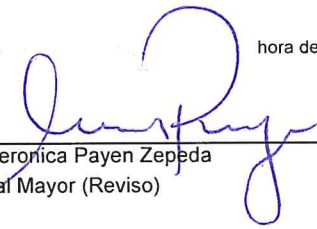 hora de
eronica Payen Zepeda
al Mayor (Reviso)